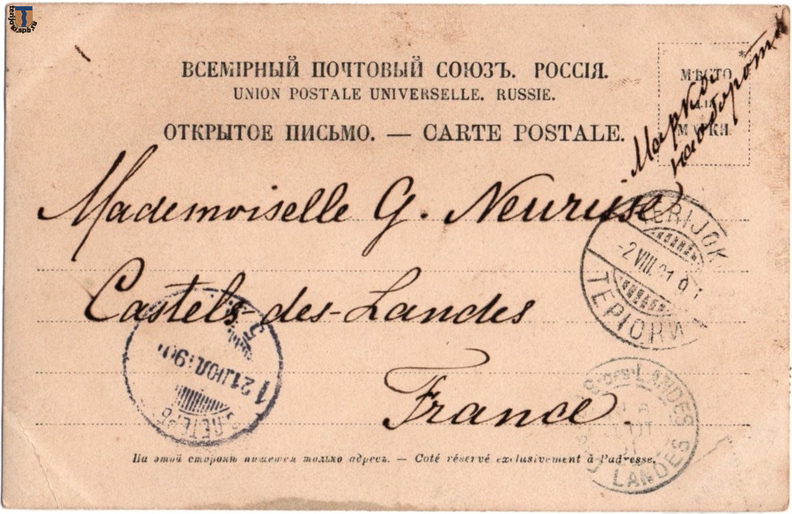 terijoki.spb.ru
ВСЕМІРНЫЙ ПОЧТОВЫЙ СОЮЗЪ. РОССІЯ.
UNION POSTALE UNIVERSELLE. RUSSIE.
ОТКРЫТОЕ ПИСЬМО. — CARTE POSTALE.
МѢСТО
МАРКИ
Марка
на оборотѣ
Mademoiselle G.
Castels-des-Landes
France
TERIJOKI
2.VIII.01
ТЕРІОКИ
21 ІЮЛ 190
С.ПЕТЕРБ
DES LANDES
LANDES
На этой сторонѣ пишется только адресъ. — Coté réservé exclusivement à l'adresse.